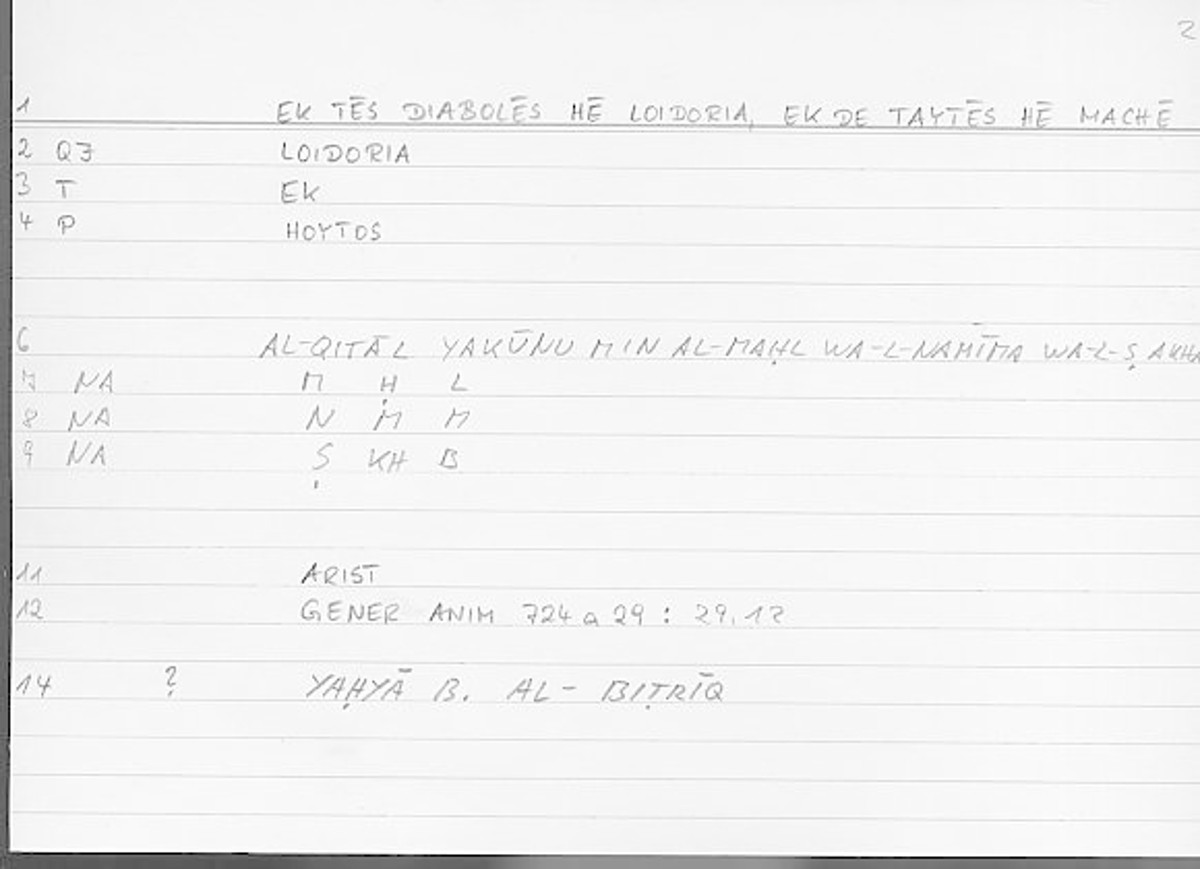 2
1 EK TĒS DIABOLĒS HĒ LOIDORIA, EK DE TAYTĒS HĒ MACHĒ
2 QJ LOIDORIA
3 T EK
4 P HOYTOS
6 AL-QITĀL YAKŪNU MIN AL-MAḤL WA-L-NAMĪMA WA-L-ṢAKHA
7 NA M Ḥ L
8 NA N M M
9 NA Ṣ KH B
11 ARIST
12 GENER ANIM 724 a 29 : 29.12
14 ? YAḤYĀ B. AL-BIṬRĪQ